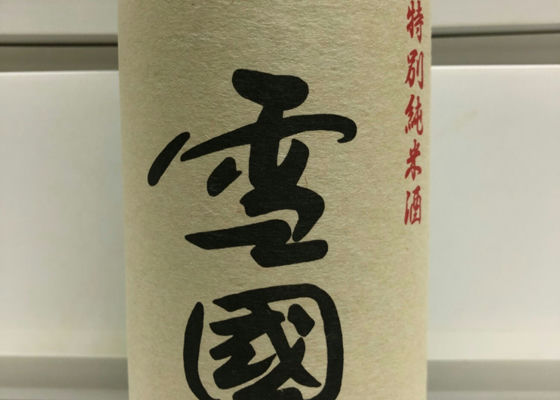 特別純米酒
雪國